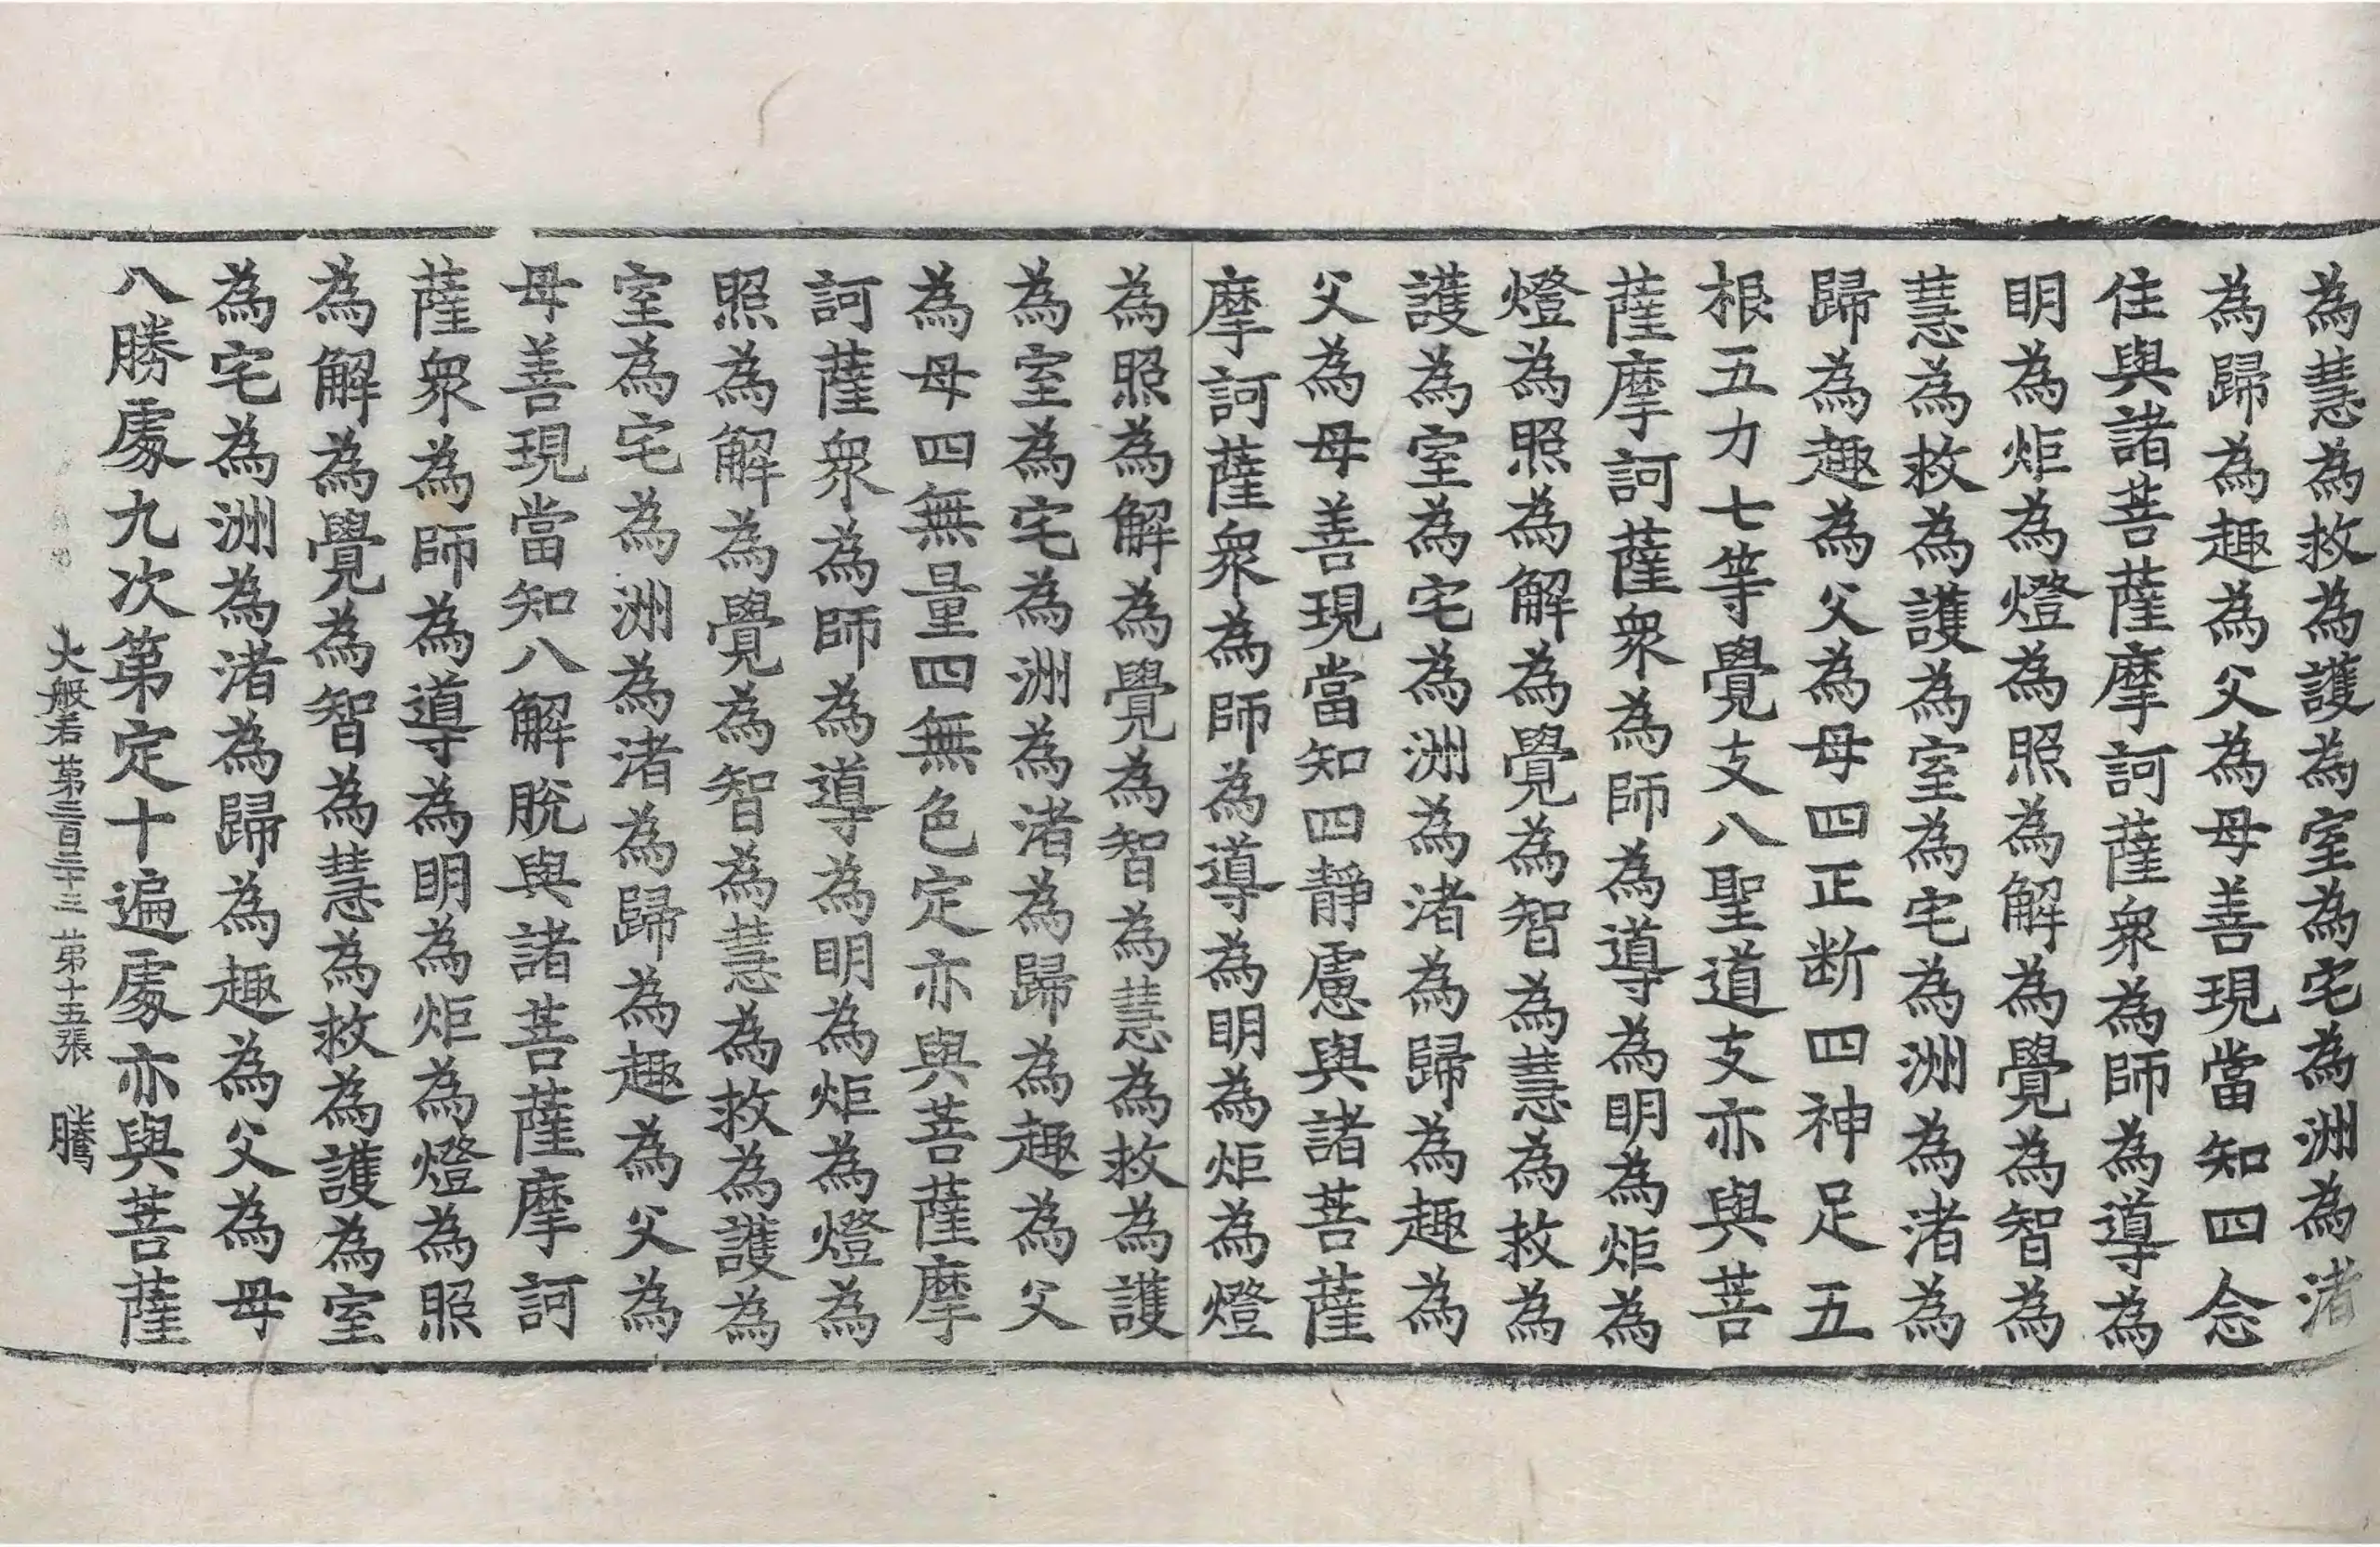 為慧為救為護為室為宅為洲為渚
為歸為趣為父為母善現當知四念
住與諸菩薩摩訶薩衆為師為導為
明為炬為燈為照為解為覺為智為
慧為救為護為室為宅為洲為渚為
歸為趣為父為母四正断四神足五
根五力七等覺支八聖道支亦與菩
薩摩訶薩衆為師為導為明為炬為
燈為照為解為覺為智為慧為救為
護為室為宅為洲為渚為歸為趣為
父為母善現當知四靜慮與諸菩薩
摩訶薩衆為師為導為明為炬為燈
為照為解為覺為智為慧為救為護
為室為宅為洲為渚為歸為趣為父
為母四無量四無色定亦與菩薩摩
訶薩衆為師為導為明為炬為燈為
照為解為覺為智為慧為救為護為
室為宅為洲為渚為歸為趣為父為
母善現當知八解脫與諸菩薩摩訶
薩衆為師為導為明為炬為燈為照
為解為覺為智為慧為救為護為室
為宅為洲為渚為歸為趣為父為母
八勝處九次第定十遍處亦與菩薩
大般若第三百三十三 第十五張 騰